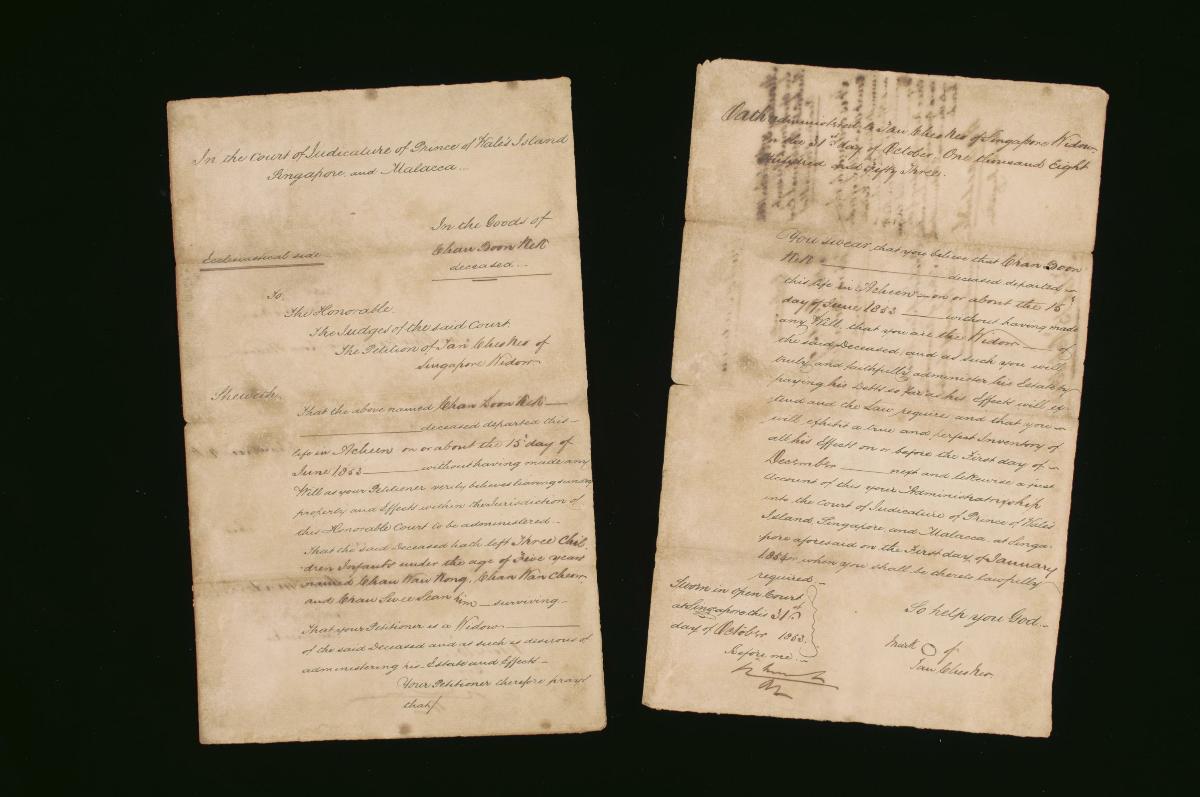 In the Court of Judicature of Prince of Wales Island
Singapore and Malacca
In the Goods of
Chan Boon Kek
deceased
Ecclesiastical side
To,
The Honorable,
The Judges of the said Court,
The Petition of Tan Cheo Keo of
Singapore Widow
Sheweth,
That the above named Chan Boon Kek
deceased departed this
life in Acheen on or about the 15th day of
June 1853 without having made any
Will as your Petitioner verily believes leaving sundry
property and Effects within the Jurisdiction of
this Honorable Court to be administered
That the said Deceased hath left Three Chil-
dren Infants under the age of Five years
named Chan Wan Kong, Chan Wan Cheow
and Chan Swee Sean him surviving
That your Petitioner is a Widow
of the said Deceased and as such is desirous of
administering his Estate and Effects
Your Petitioner therefore prays
that/
Oath administered to Tan Cheo Keo of Singapore Widow,
on the 31st day of October, One thousand Eight
Hundred and Fifty Three.
You swear, that you believe that Chan Boon
Kek deceased departed
this life in Acheen on or about the 15th
day of June 1853 without having made
any Will, that you are the Widow of
the said Deceased, and as such you will
truly and faithfully administer his Estate by
paying his Debts so far as his Effects will ex-
tend and the Law require and that you
will exhibit a true and perfect Inventory of
all his Effects on or before the First day of
December next and likewise a just
account of this your Administratorship
into the Court of Judicature of Prince of Wales
Island, Singapore, and Malacca at Singa-
pore aforesaid on the First day, of January
1854 or when you shall be thereto lawfully
required.
Sworn in Open Court
at Singapore this 31st
day of October 1853.
Before me
So help you God.
Mark of
Tan Cheo Keo